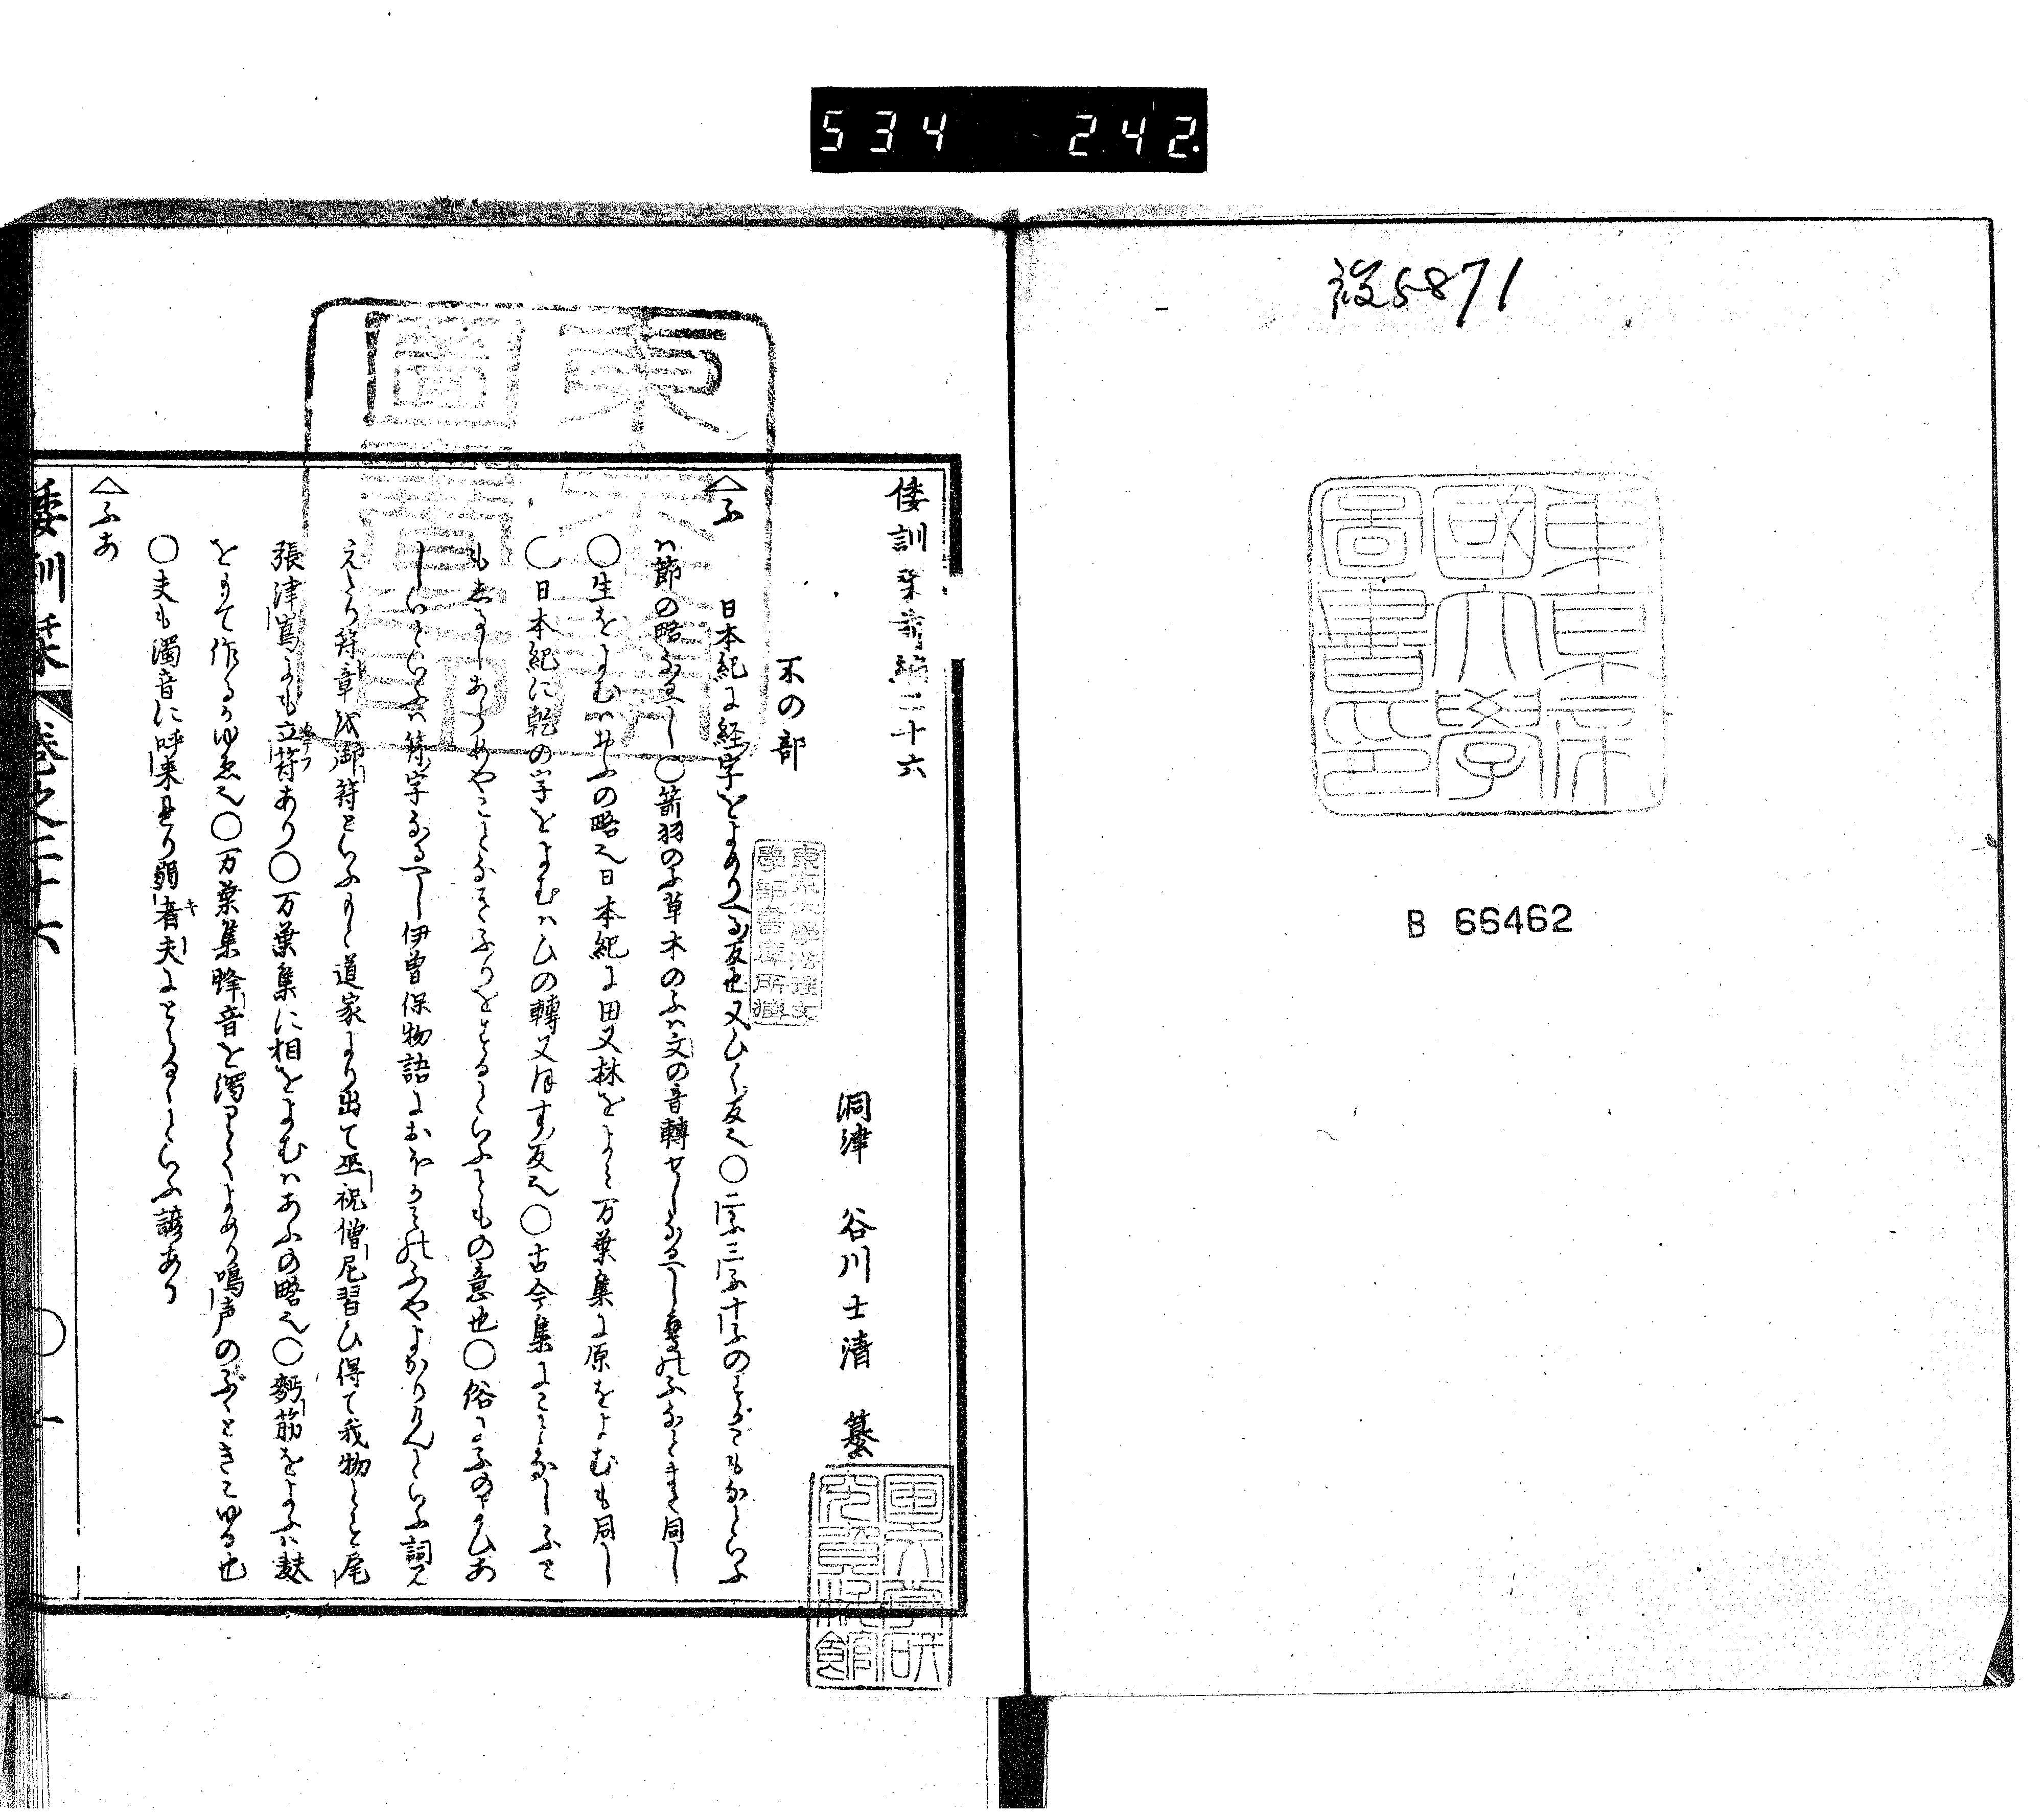 534 242.
設5871
東京帝國大學圖書印
B 66462
倭訓栞前編二十六
洞津 谷川士清 纂
不の部
△ふ 日本紀に経字をよめりへる反也又ひく反也〇二ふ三ふ十ふのすがごもなといふ
ハ節の略なるへし〇箭羽のふ草木のふハ文の音轉せしなるへし鷹のふなとまた同し
〇生をよむハおふの略也日本紀に田又林をよみ万葉集に原をよむも同し
〇日本紀に乾の字をよむハひの轉又ほす反也〇古今集にことなしふと
もしるしあらめやことなきふりをするといふともの意也〇俗にふのよひあ
しいといふハ符字なるへし伊曽保物語におほかみのふやよかりけんといふ詞見
えたり符章或御符といふもと道家より出て巫祝僧尼習ひ得て我物とす尾
張津嶌にも立符あり〇万葉集に相をよむハあふの略也〇麫筋をよふハ麩
をもて作るかゆゑ也〇万葉集蜂音を濁りてよめり鳴声のぶときこゆる也
〇夫も濁音に呼来れり弱者夫にとらるといふ諺あり
△ふあ
倭訓栞 巻之二十六 〇一